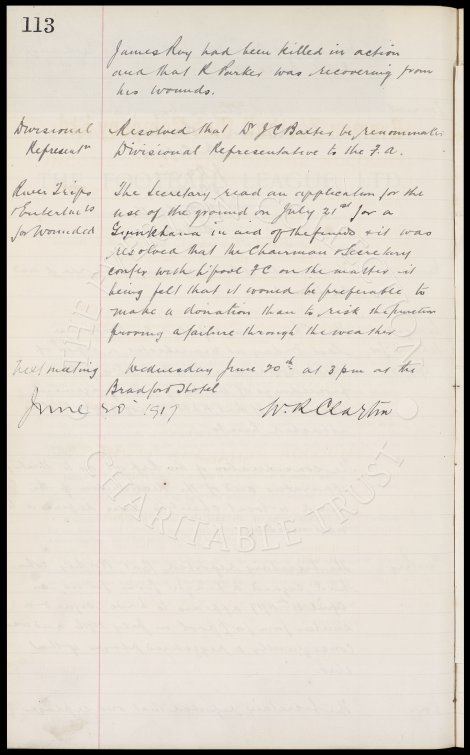 113
James Roy had been killed in action
and that R Parker was recovering from
his wounds.
Divisional Resolved that Dr J C Baxter be renominated
Represent've Divisional Representative to the F.A.
River Trips The Secretary read an application for the
& Entertain'ts use of the ground on July 21st for a
for Wounded Gymkhana in aid of the funds & it was
resolved that the Chairman & Secretary
confer with L'pool F C on the matter it
being felt that it would be preferable to
make a donation than to risk the function
proving a failure through the weather
Next meeting Wednesday June 20th at 3 pm at the
Bradford Hotel
June 20 1917 W. R. Clayton
THE EVERTON COLLECTION
CHARITABLE TRUST